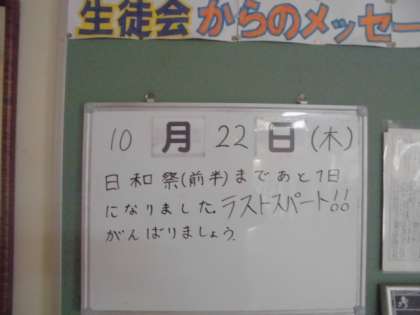 生徒会からのメッセー
10月22日(木)
日和祭(前半)まであと1日
になりました。ラストスパート!!
がんばりましょう。